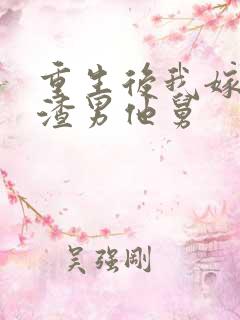 重生後我嫁
渣男他舅
吴强剛